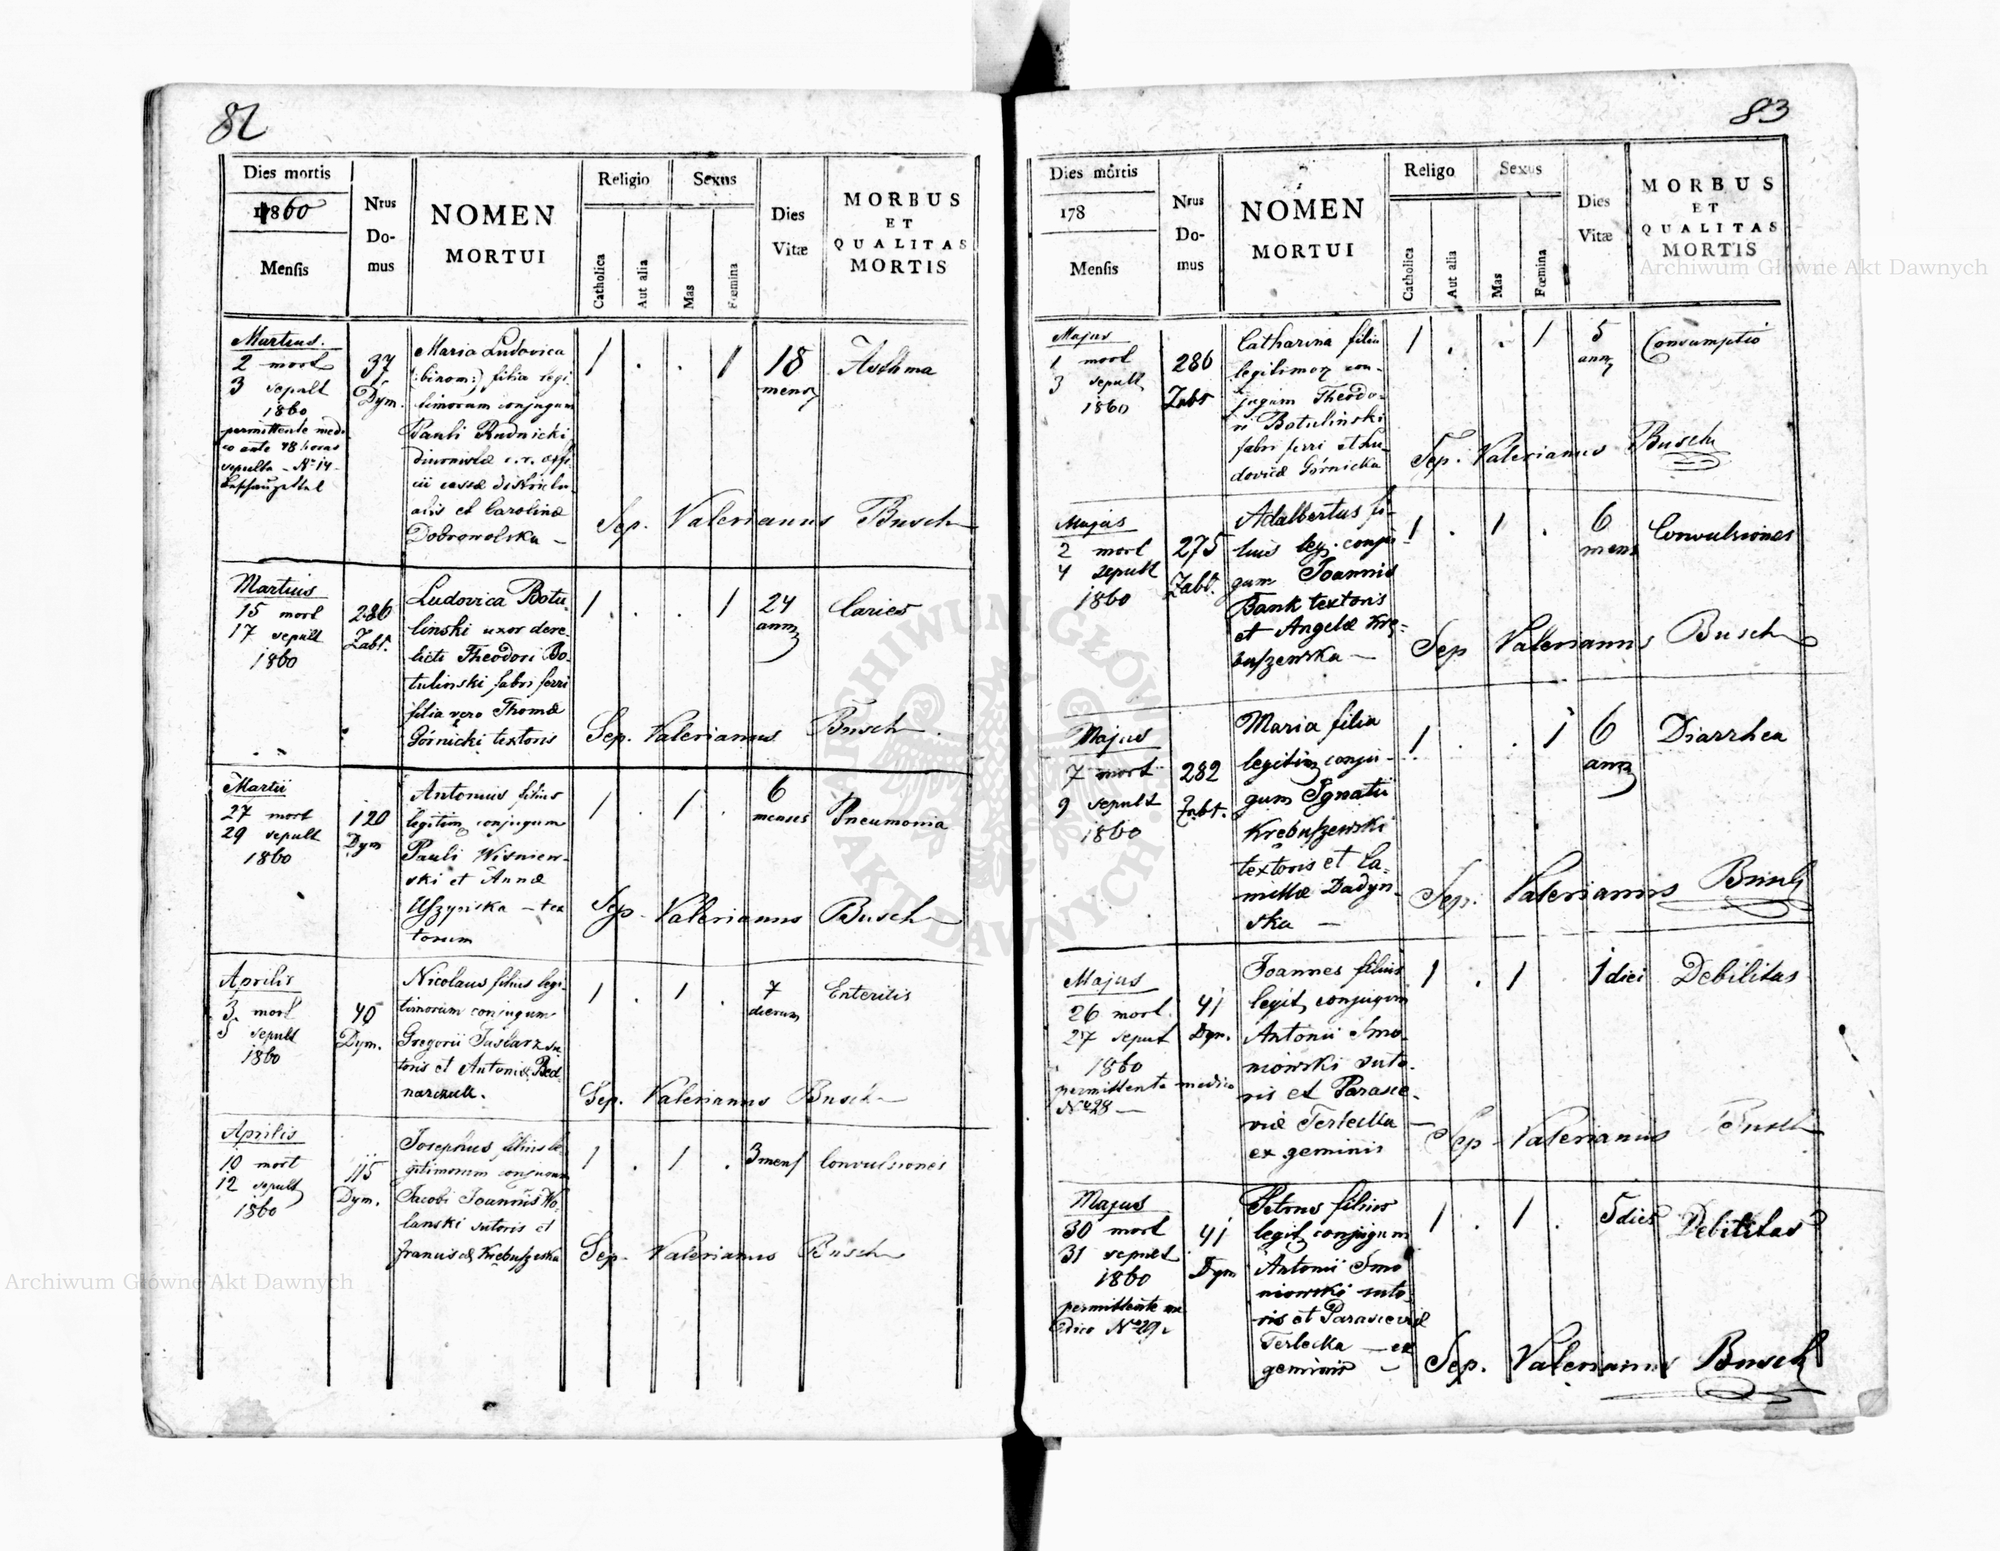 82
Dies mortis
1860
Mensis
Nrus
Do-
mus
NOMEN
MORTUI
Religio
Catholica
Aut alia
Sexus
Mas
Fœmina
Dies
Vitæ
MORBUS
ET
QUALITAS
MORTIS
Martius.
2 mort
3 sepult
1860
permittente medi
co ante 48 horas
sepulta - No 14 -
37
Dym.
Maria Ludovica
(:binom:) filia legi
timorum conjugum
Pauli Rudnicki
diurnistæ c. r. offi
cii cassæ districtu
alis et Carolinæ
Dobrowolska —
1 . . 1
18
mens
Asthma
Sep. Valerianus Busch
Martius
15 mort
17 sepult
1860
286
Zabł.
Ludovica Botu
linski uxor dere
licti Theodori Bo
tulinski fabri ferri
filia vero Thomæ
Górnicki textoris
1 . . 1
24
ann
Caries
Sep. Valerianus Busch
Martii
27 mort
29 sepult
1860
120
Dym
Antonius filius
legitim conjugum
Pauli Wisniew-
ski et Annæ
Uszyńska - tex
torum
1 . 1 .
6
menses
Pneumonia
Sep. Valerianus Busch
Aprilis
3 mort
5 sepult
1860
40
Dym.
Nicolaus filius legi-
timorum conjugum
Gregorii Tuslarz su
toris et Antoniæ Bed-
narczuk.
1 . 1 .
7
dierum
Enteritis
Sep. Valerianus Busch
Aprilis
10 mort
12 sepult
1860
115
Dym.
Josephus filius le-
gitimorum conjugum
Jacobi Joannis Wo-
lanski sutoris et
Franciscæ Krebuszeska
1 . 1 .
3 mens
Convulsiones
Sep. Valerianus Busch
83
Dies mortis
178
Mensis
Nrus
Do-
mus
NOMEN
MORTUI
Religo
Catholica
Aut alia
Sexus
Mas
Fœmina
Dies
Vitæ
MORBUS
ET
QUALITAS
MORTIS
Majus
1 mort
3 sepult
1860
286
Zabł
Catharina filia
legitimor con-
jugum Theodo-
ri Botulinski
fabri ferri et Lu
dovicæ Górnicka
1 . . 1
5
ann
Consumptio
Sep. Valerianus Busch
Majus
2 mort
4 sepult
1860
275
Zabł.
Adalbertus fi-
lius leg. conju
gum Joannis
Bank textoris
et Angelæ Krę-
buszewska —
1 . 1 .
6
mens
Convulsiones
Sep Valerianus Busch
Majus
7 mort
9 sepult
1860
282
Zabł.
Maria filia
legitim conju-
gum Ignatii
Krębuszewski
textoris et Ca-
millæ Dadyn-
ska —
1 . . 1
6
ann
Diarrhea
Sep. Valerianus Busch
Majus
26 mort.
27 sepult
1860
permittente medico
No 28 —
41
Dym.
Joannes filius
legit conjugum
Antonii Smo-
niowski suto-
ris et Parasce-
viæ Terlecka —
ex geminis
1 . 1 .
1 diei
Debilitas
Sep Valerianus Busch
Majus
30 mort
31 sepult
1860
permittente me
dico No 29.
41
Dym
Petrus filius
legit conjugum
Antonii Smo
niowski suto-
ris et Parasceviæ
Terlecka — ex
geminis —
1 . 1 .
5 dies
Debilitas
Sep. Valerianus Busch
ARCHIWUM GŁÓWNE AKT DAWNYCH
Archiwum Główne Akt Dawnych
Archiwum Główne Akt Dawnych